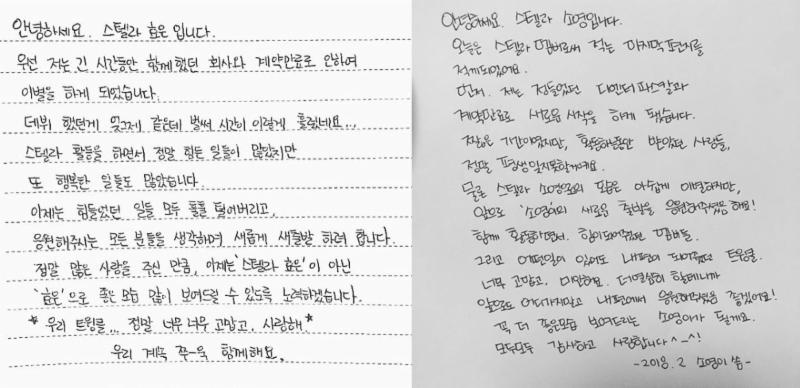 안녕하세요. 스텔라 효은 입니다.
우선 저는 긴 시간동안 함께했던 회사와 계약만료로 인하여
이별을 하게 되었습니다.
데뷔 했던게 엊그제 같은데 벌써 시간이 이렇게 흘렀네요...
스텔라 활동을 하면서 정말 힘든 일들이 많았지만
또 행복한 일들도 많았습니다.
이제는 힘들었던 일들 모두 훌훌 털어버리고,
응원해주시는 모든 분들을 생각하며 새롭게 새출발 하려 합니다.
정말 많은 사랑을 주신 만큼, 이제는 '스텔라 효은'이 아닌
'효은'으로 좋은 모습 많이 보여드릴 수 있도록 노력하겠습니다.
* 우리 트윙클... 정말 너무너무 고맙고, 사랑해 *
우리 계속 쭈-욱 함께해요.
안녕하세요. 스텔라 소영입니다.
오늘은 스텔라 멤버로써 적는 마지막 편지를
적게되었어요.
먼저. 저는 정들었던 디엔터파스칼과
계약만료로 새로운 시작을 하게 됐습니다.
짧은 기간이였지만, 활동하는동안 받았던 사랑들,
정말 평생 잊지못할거에요.
물론 스텔라 소영으로의 모습은 아쉽게 이별하지만,
앞으로 '소영'이의 새로운 출발을 응원해주셨음 해요!
함께 활동하면서, 힘이되어줬던 멤버들.
그리고 어떤일이 있어도 내편이 되어줬던 트윙클.
너무 고맙고, 미안해요. 더열심히 할테니까
앞으로도 어디가지말고 내편에서 응원해주셨음 좋겠어요!
꼭 더 좋은모습 보여드리는 소영이가 될게요.
모두모두 감사하고 사랑합니다^_^!
-2018. 2 소영이 씀-